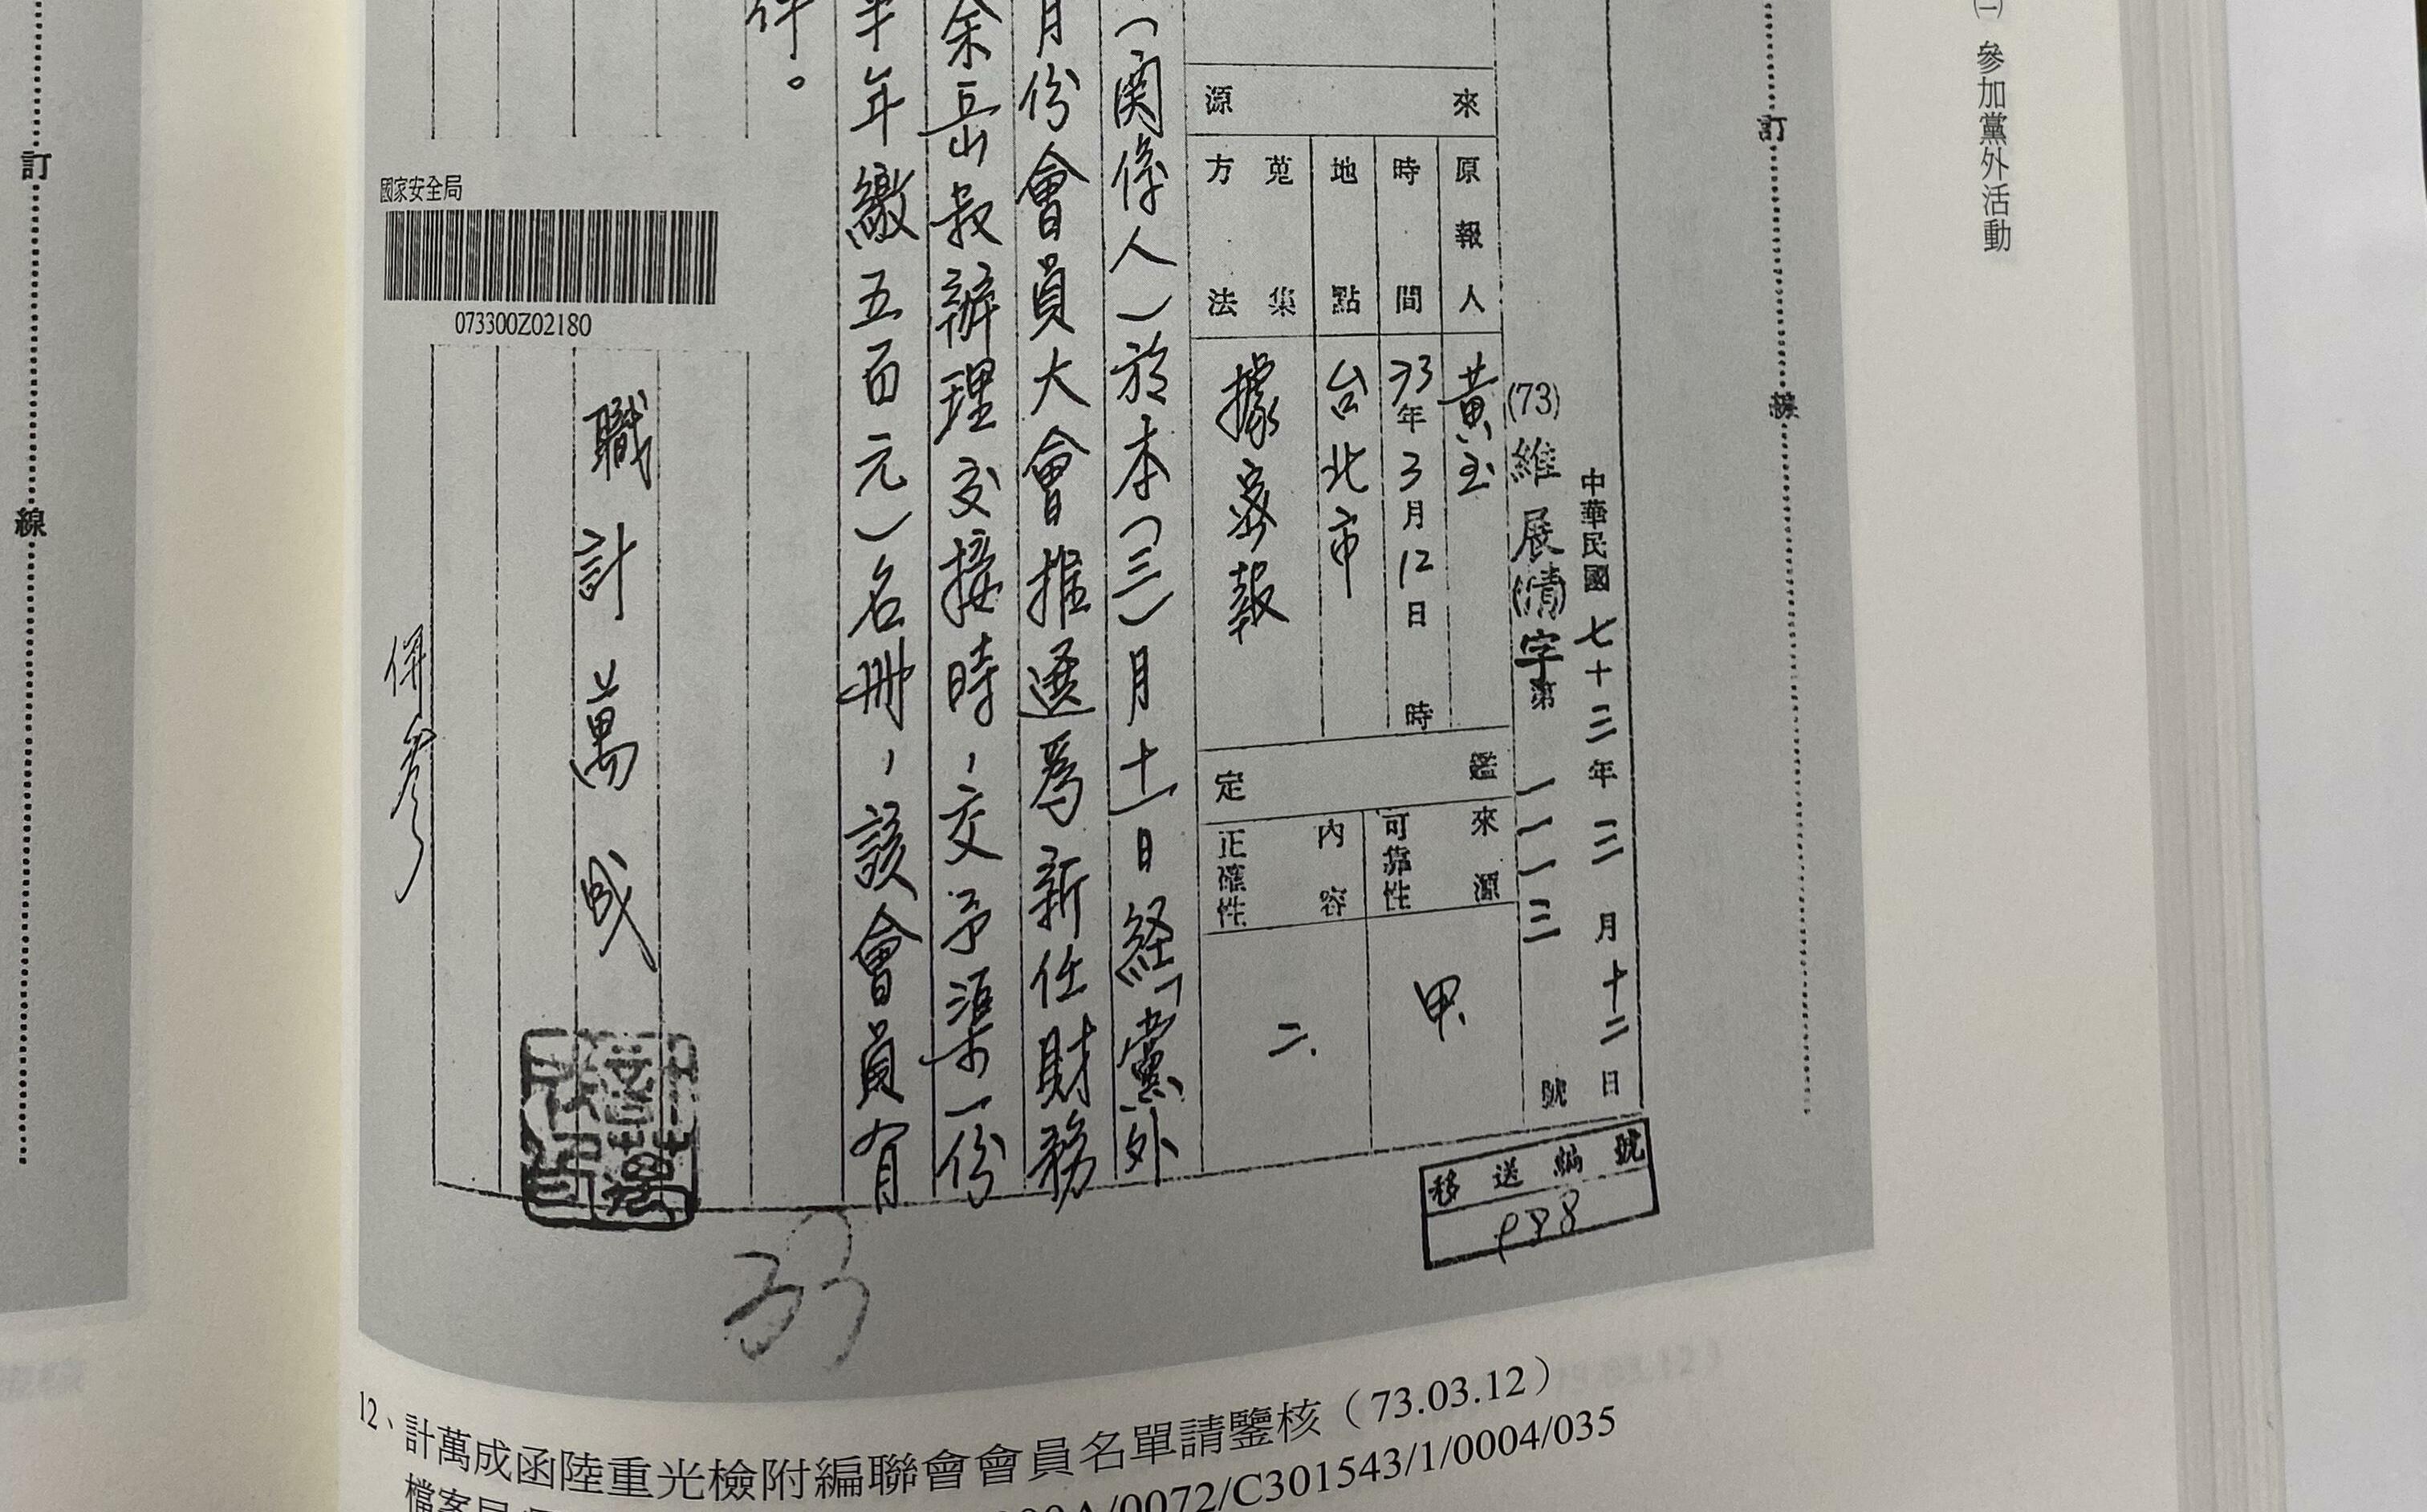 ㈠ 參加黨外活動
訂
線
中華民國七十三年三月十二日
(73)維展(清)字第一一一三號
移送編號
來源
原報人
黃玉
時間
73年3月12日時
地點
台北市
蒐集方法
據密報
鑑定
來源可靠性
甲
內容正確性
二
(関係人)於本(三)月十一日経「黨外
月份會員大會推選為新任財務
余岳叔辦理交接時，交予渠一份
半年繳五百元)名冊，該會員有
件。
職計萬成
併參
國家安全局
073300Z02180
33
訂
線
12、計萬成函陸重光檢附編聯會會員名單請鑒核（73.03.12）
A/0072/C301543/1/0004/035